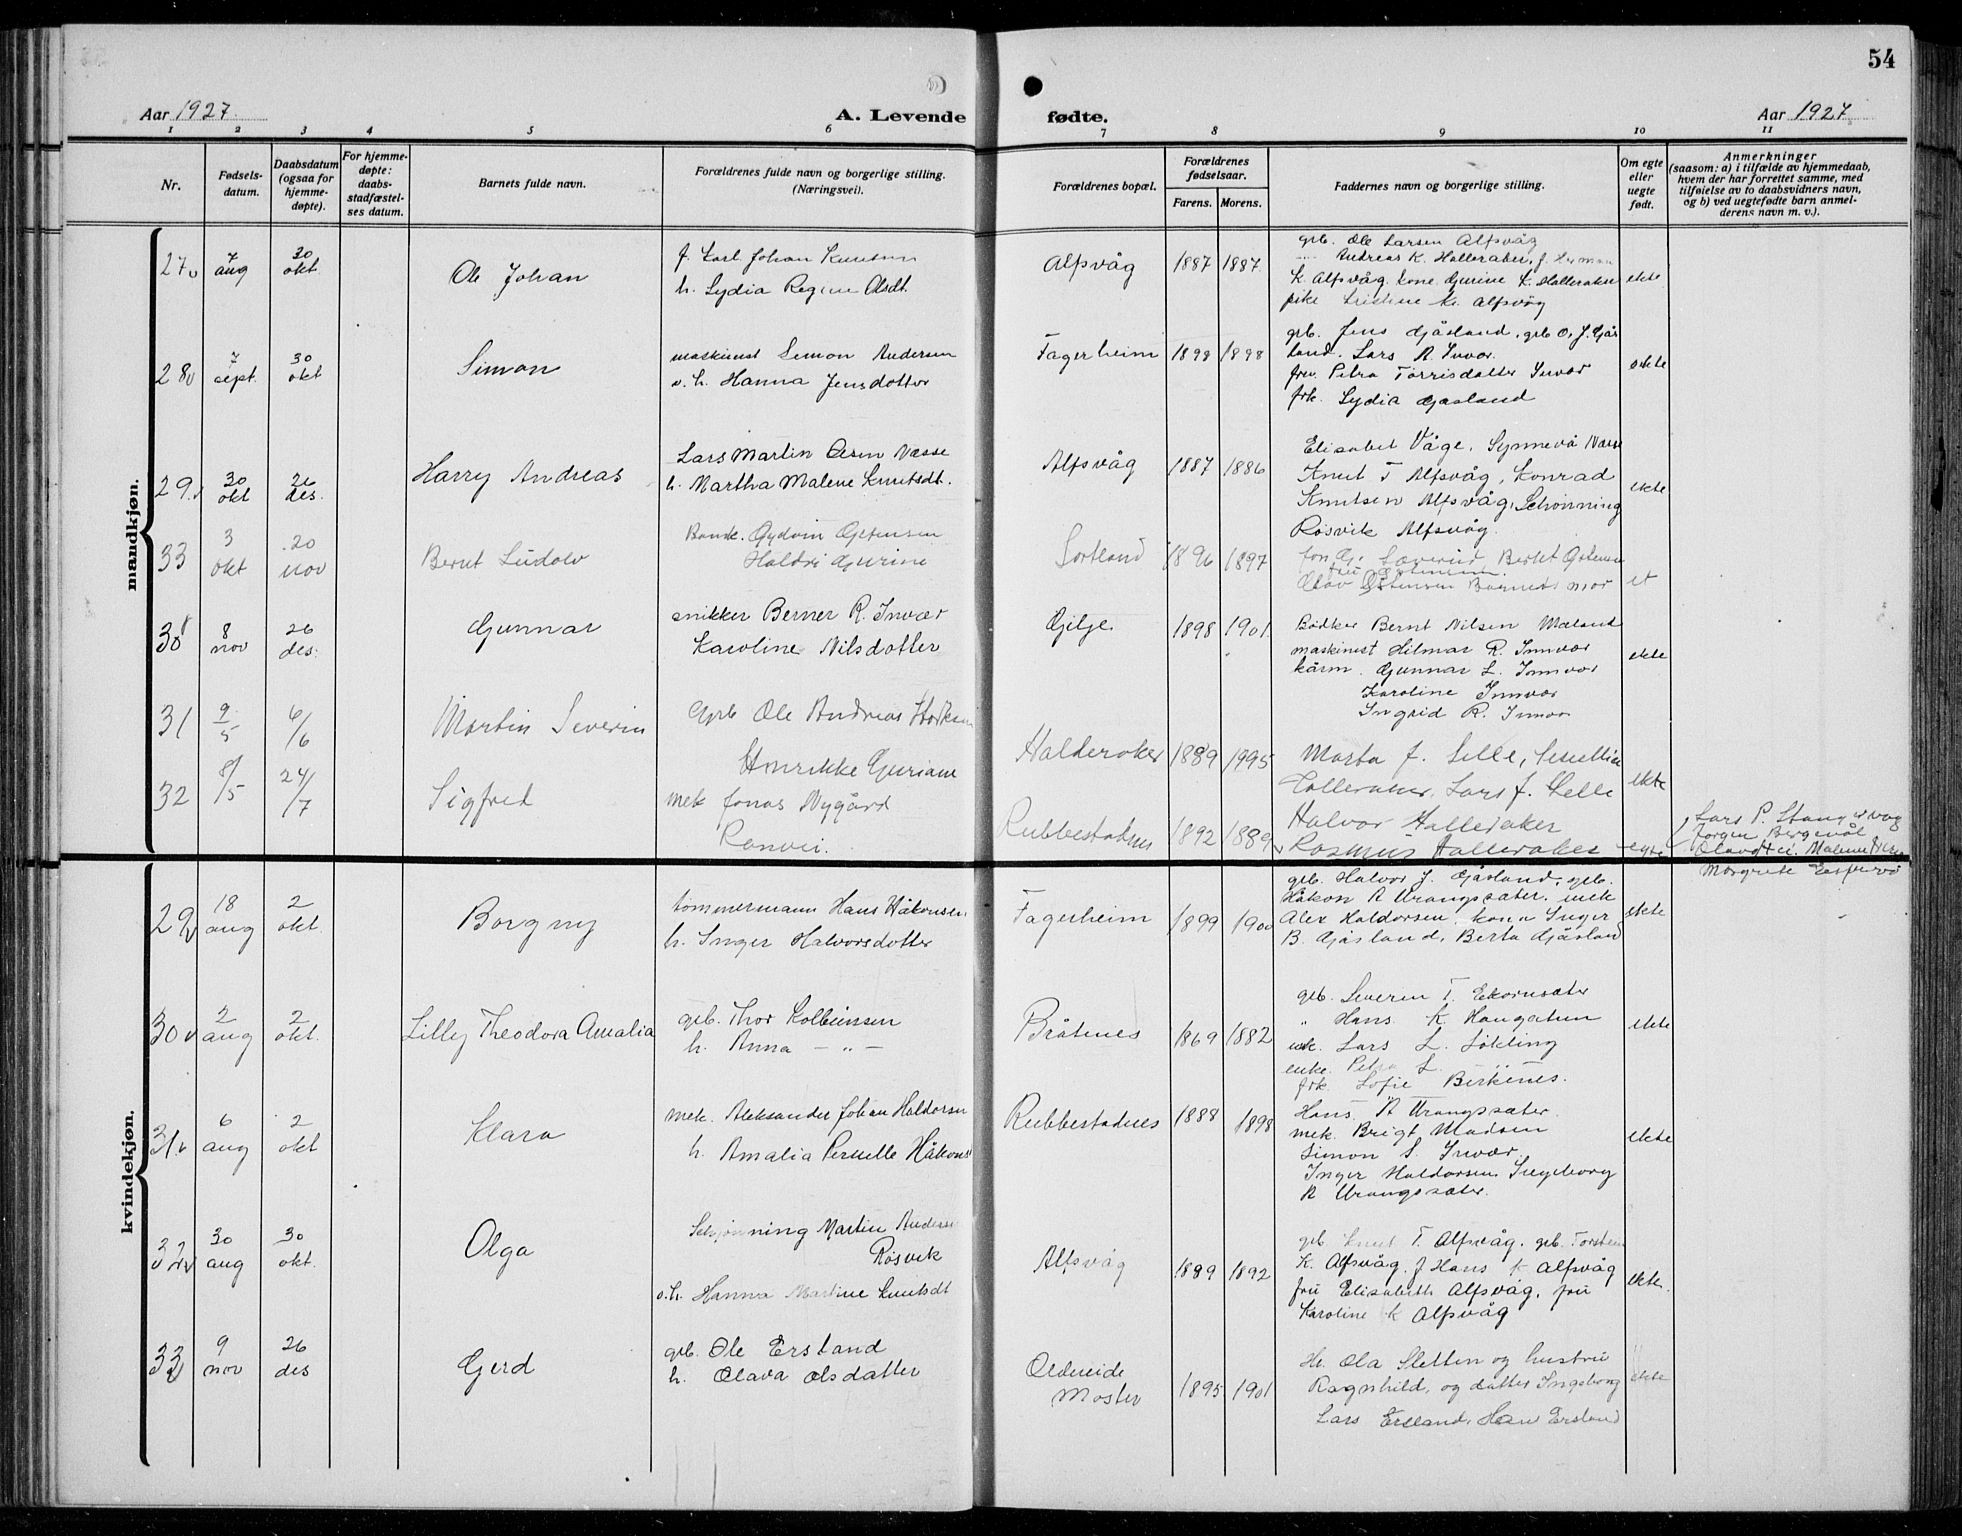 54
Aar 1927
A. Levende fødte.
Aar 1927
1 2 3 4 5 6 7 8 9 10 11
Nr.
Fødsels-
datum.
Daabsdatum
(ogsaa for
hjemme-
døpte).
For hjemme-
døpte:
daabs-
stadfæstel-
ses datum.
Barnets fulde navn.
Forældrenes fulde navn og borgerlige stilling.
(Næringsvei).
Forældrenes bopæl.
Forældrenes
fødselsaar.
Farens. Morens.
Faddernes navn og borgerlige stilling.
Om egte
eller
uegte
født.
Anmerkninger
(saasom: a) i tilfælde av hjemmedaab,
hvem der har forrettet samme, med
tilføielse av to daabsvidners navn,
og b) ved uegtefødte barn anmel-
derens navn m. v.).
mandkjøn.
27
7
aug
30
okt.
Ole Johan
f. Karl Johan Knutsen
h. Lydia Regine Olsdt.
Alfsvåg
1887
1887
grb. Ole Larsen Alfsvåg
Andreas K. Halleraker, f. Herman
K. Alfsvåg, kone Gurine K. Halleraker
pike Kristine K. Alfsvåg
ekte
28
7
sept.
30
okt
Simon
maskinist Simon Andersen
o. h. Hanna Jensdotter
Fagerheim
1898
1898
grb. Jens Gjåsland, grb O. J. Gjås
land. Lars A. Invær.
fru. Petra Torrisdatter Invær
frk. Lydia Gjåsland
ekte
29
30
okt
26
des.
Harry Andreas
Lars Martin Olsen Næsse
h. Martha Malene Knutsdt.
Alfsvåg
1887
1886
Elisabet Våge, Synnevå Næsse
Knut T Alfsvåg, Konrad
Knutsen Alfsvåg, Schønning
Røsvik Alfsvåg
ekte
33
3
okt
20
nov
Bernt Ludolv
Øydvin Østensen
Haldis Gurine
Sortland
1896
1897
Bertet Østensen
Olav Østensen Barnets mor
30
8
nov
26
des.
Gunnar
snikker Berner R. Invær
Karoline Nilsdotter
Gilje
1898
1901
Bødker Bernt Nilsen Mæland
maskinist Hilmar R. Innvær
Gunnar L. Innvær
Karoline Innvær
Ingrid R. Innvær
ekte
31
9
5
6/6
Martin Severin
Grb Ole Andreas
Henrikke Guriane
Halderaker
1889
1995
Marta J. Selle,
Halleraker, Lars J. Selle
ekte
32
8/5
24/7
Sigfred
mek Jonas Nygård
Ranvei.
Rubbestadnes
1892
1889
Halvor Halleraker
Rasmus Halleraker
egte
Lars P. Stangervåg
Jørgen Bergesvåg
Margrete Espevær
kvindekjøn.
29
18
aug
2
okt.
Borgny
tømmermann Hans Håkonsen
h. Inger Halvorsdotter
Fagerheim
1899
1900
grb. Halvor J. Gjåsland, grb.
Håkon A Vrangssæter. mek
Alex Haldorsen, kone Inger
B. Gjåsland, Berta Gjåsland
ekte
30
2
aug
2
okt.
Lilly Theodora Amalia
grb. Thor Kolbeinsen
h. Anna — „ —
Bråtenes
1869
1882
grb. Severin T. Ekornsæter
„ Hans K. Haugatun
mek. Lars L. Løkling
enke. Petra L. „
frk. Sofie Birkenes.
ekte
31
6
aug
2
okt
Klara
mek. Aleksander Johan Haldorsen
h. Amalia Pernelle Håkonsd
Rubbestadnes
1888
1898
Hans A Vrangssæter.
mek. Brigt Madsen
Simon S. Invær.
Inger Haldorsen, Ingeborg
A Vrangssæter.
ekte
32
30
aug
30
okt.
Olga
Schjønning Martin Anders
Røsvik
o. h. Hanna Martine Knutsdt
Alfsvåg
1889
1892
grb Knut T. Alfsvåg. grb. Torstein
K. Alfsvåg. f Hans K Alfsvåg
fru Elisabeth Alfsvåg, fru
Karoline K Alfsvåg
ekte.
33
9
nov
26
des
Gerd
grb. Ole Ersland
h. Olava Olsdatter
Oldereide
Moster
1895
1901
Hr. Ola Sletten og hustru
Ragnhild, og datter Ingeborg
Lars Ersland, Hans Ersland
ekte